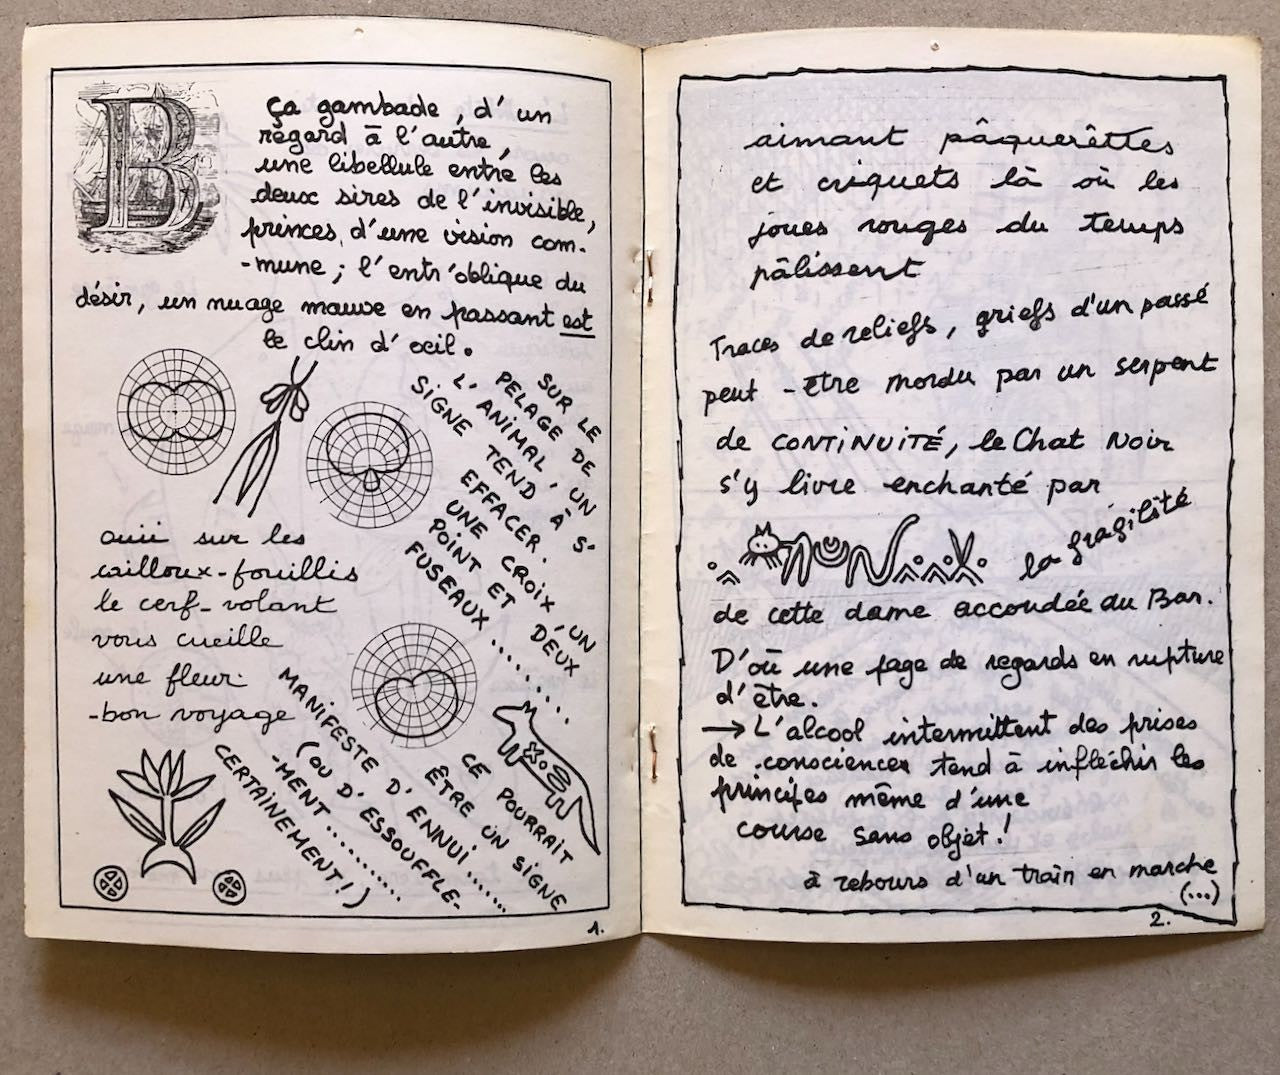 B
ça gambade, d'un
regard à l'autre,
une libellule entre les
deux sires de l'invisible,
princes d'une vision com-
-mune ; l'entr'oblique du
désir, un nuage mauve en passant est
le clin d'oeil.
SUR LE
PELAGE DE
L'ANIMAL, UN
SIGNE TEND À S'-
EFFACER.
UNE CROIX, UN
POINT ET DEUX
FUSEAUX..........
ouii sur les
cailloux-fouillis
le cerf-volant
vous cueille
une fleur
-bon voyage
CE POURRAIT
ÊTRE UN SIGNE
MANIFESTE D'ENNUI......
(OU D'ESSOUFFLE-
-MENT..........
CERTAINEMENT!)
1.
aimant pâquerêttes
et criquets là où les
joues rouges du temps
pâlissent
Traces de reliefs, griefs d'un passé
peut-être mordu par un serpent
de CONTINUITÉ, le Chat Noir
s'y livre enchanté par
la fragilité
de cette dame accoudée au Bar.
D'où une page de regards en rupture
d'être.
→ L'alcool intermittent des prises
de consciences tend à infléchir les
principes même d'une
course sans objet!
à rebours d'un train en marche
(...)
2.